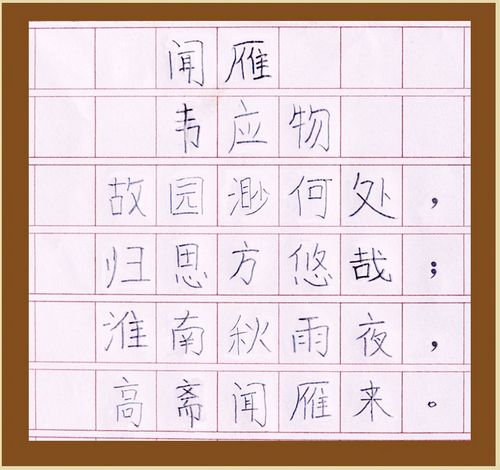 闻雁
韦应物
故园渺何处，
归思方悠哉；
淮南秋雨夜，
高斋闻雁来。